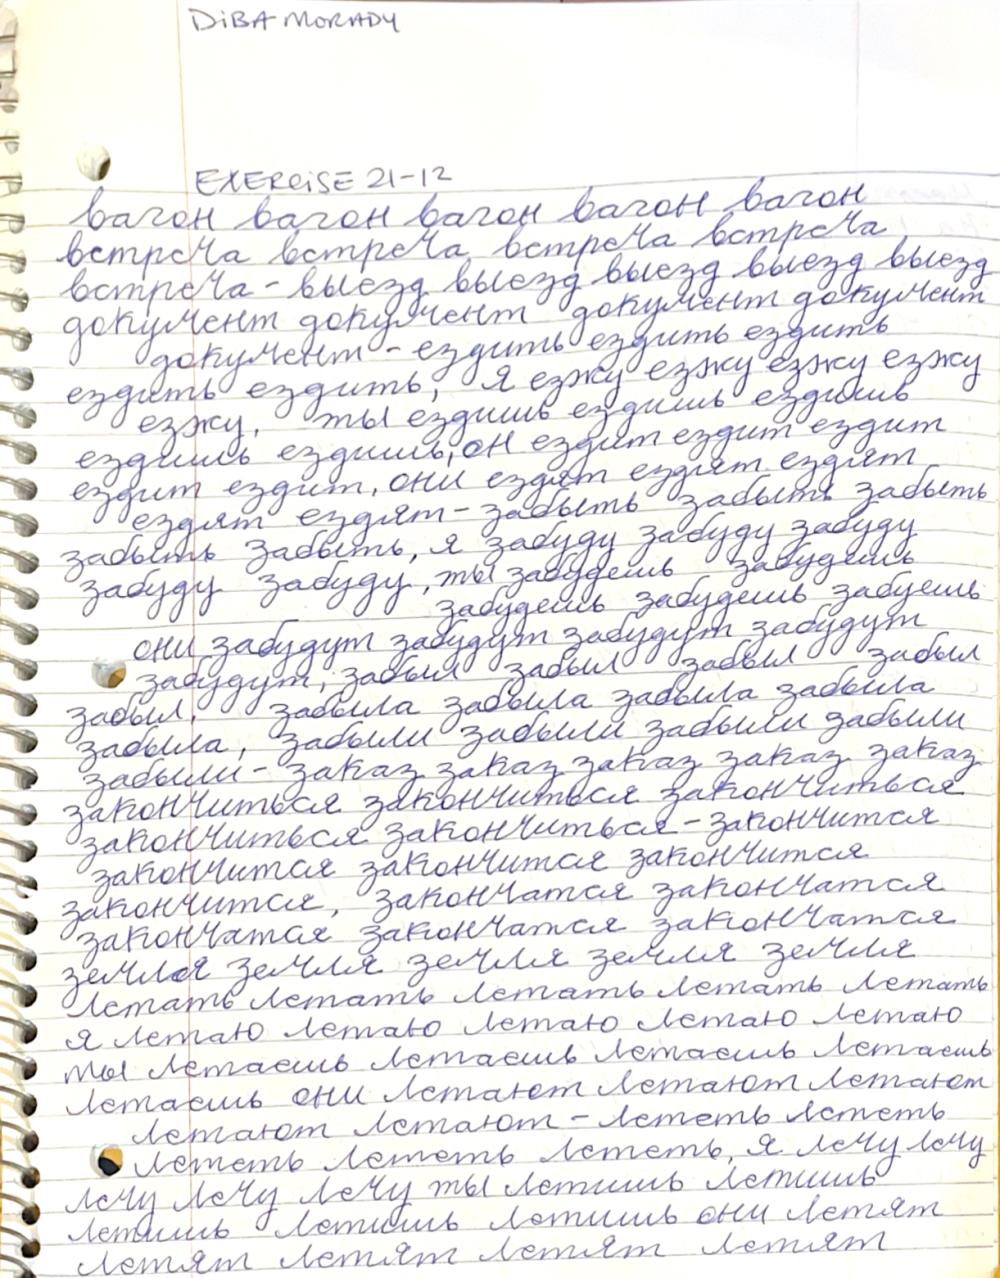 DiBA MORADY
EXERCiSE 21-12
вагон вагон вагон вагон вагон
встреча встреча встреча встреча
встреча - выезд выезд выезд выезд выезд
документ документ документ документ
документ - ездить ездить ездить
ездить ездить, я езжу езжу езжу езжу
езжу, ты ездишь ездишь ездишь
ездишь ездишь, он ездит ездит ездит
ездит ездит, они ездят ездят ездят
ездят ездят - забыть забыть забыть
забыть забыть, я забуду забуду забуду
забуду забуду, ты забудешь забудешь
забудешь забудешь забуешь
они забудут забудут забудут забудут
забудут, забыл забыл забыл забыл
забыл, забыла забыла забыла забыла
забыла, забыли забыли забыли забыли
забыли - заказ заказ заказ заказ заказ
закончиться закончиться закончиться
закончиться закончиться - закончится
закончится закончится закончится
закончится, закончатся закончатся
закончатся закончатся закончатся
земля земля земля земля земля
летать летать летать летать летать
я летаю летаю летаю летаю летаю
ты летаешь летаешь летаешь летаешь
летаешь они летают летают летают
летают летают - лететь лететь
лететь лететь лететь, я лечу лечу
лечу лечу лечу ты летишь летишь
летишь летишь летишь они летят
летят летят летят летят